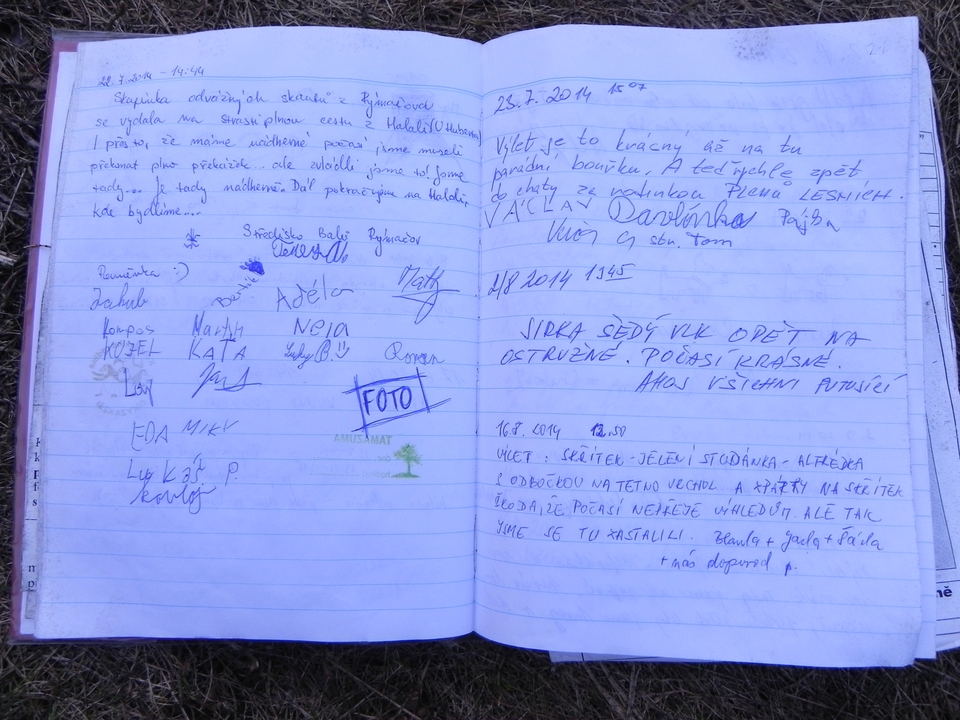 22.7.2014 - 14:44
Skupinka odvážných skautů z Rýmařova
se vydala na strastiplnou cestu z Halali (U Huberta)
I přes to, že máme nádherné počasí jsme museli
překonat plno překážek... ale zvládli jsme to! Jsme
tady... Je tady nádherně. Dál pokračujeme na Halali,
kde bydlíme....
Středisko Balů Rýmařov
Tereza
Rouměnka :)
Bertík
Jakub
Adéla
Maty
Kompas
Marty
Nela
KOZEL
KAŤA
Luky B.
Roman
FOTO
EDA
MIKY
TAMAZUMA
Lukáš P.
23.7.2014 15 07
Výlet je to krásný až na tu
parádní bouřku. A teď rychle zpět
do chaty za rodinkou PLENŮ LESNÍCH.
VÁCLAV Pavlínka Fajka
Tom
2/8 2014 1345
SIRKA ŠEDÝ VLK OPĚT NA
OSTRUŽNÉ. POČASÍ KRÁSNÉ.
AHOJ VŠICHNI PUTUJÍCÍ
16.8. 2014 12.50
VÝLET: SKŘÍTEK - JELENÍ STUDÁNKA - ALFRÉDKA
S ODBOČKOU NA TETNO VRCHOL A ZPÁTKY NA SKŘÍTEK
ŠKODA, ŽE POČASÍ NEPŘEJE VÝHLEDŮM. ALE TAK
JSME SE TU ZASTAVILI. Blanka + Jarka + Šárka
+ náš doprovod